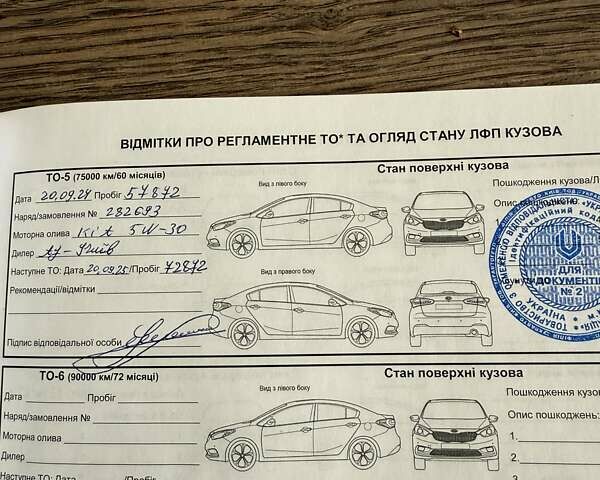 ВІДМІТКИ ПРО РЕГЛАМЕНТНЕ ТО* ТА ОГЛЯД СТАНУ ЛФП КУЗОВА
ТО-5 (75000 км/60 місяців)
Стан поверхні кузова
Дата 20.09.24 Пробіг 57872
Вид з лівого боку
Пошкодження кузова/Л
Наряд/замовлення № 282693
Опис
Моторна олива Kia 5W-30
Дилер
Наступне ТО: Дата 20.09.25/Пробіг 72872
Вид з правого боку
Рекомендації/відмітки
Підпис відповідальної особи
Ідентифікаційний код
ДЛЯ
ДОКУМЕНТІ
№ 2
УКРАЇНА
ТО-6 (90000 км/72 місяці)
Стан поверхні кузова
Дата Пробіг
Вид з лівого боку
Пошкодження кузова
Наряд/замовлення №
Опис пошкоджень:
Моторна олива
1.
Дилер
2.
Наступне ТО: Дата /Пробіг
3